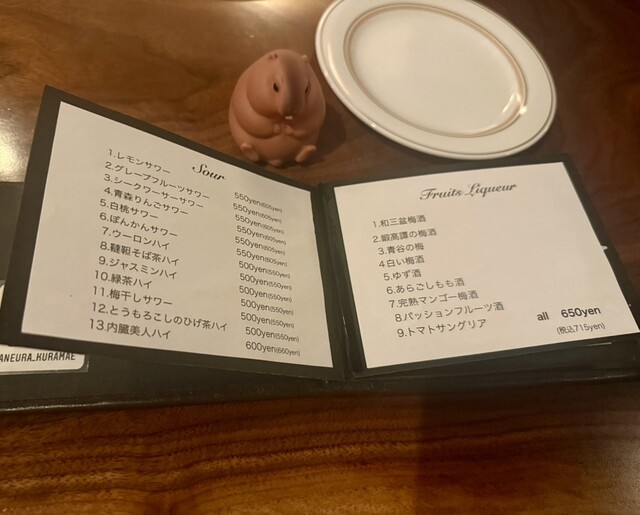 Sour
1.レモンサワー 550yen(605yen)
2.グレープフルーツサワー 550yen(605yen)
3.シークワーサーサワー 550yen(605yen)
4.青森りんごサワー 550yen(605yen)
5.白桃サワー 550yen(605yen)
6.ぽんかんサワー 550yen(605yen)
7.ウーロンハイ 500yen(550yen)
8.韃靼そば茶ハイ 500yen(550yen)
9.ジャスミンハイ 500yen(550yen)
10.緑茶ハイ 500yen(550yen)
11.梅干しサワー 500yen(550yen)
12.とうもろこしのひげ茶ハイ 500yen(550yen)
13.内臓美人ハイ 600yen(660yen)
Fruits Liqueur
1.和三盆梅酒
2.鍛高譚の梅酒
3.青谷の梅
4.白い梅酒
5.ゆず酒
6.あらごしもも酒
7.完熟マンゴー梅酒
8.パッションフルーツ酒
9.トマトサングリア
all 650yen
(税込715yen)
ANEURA_KURAMAE